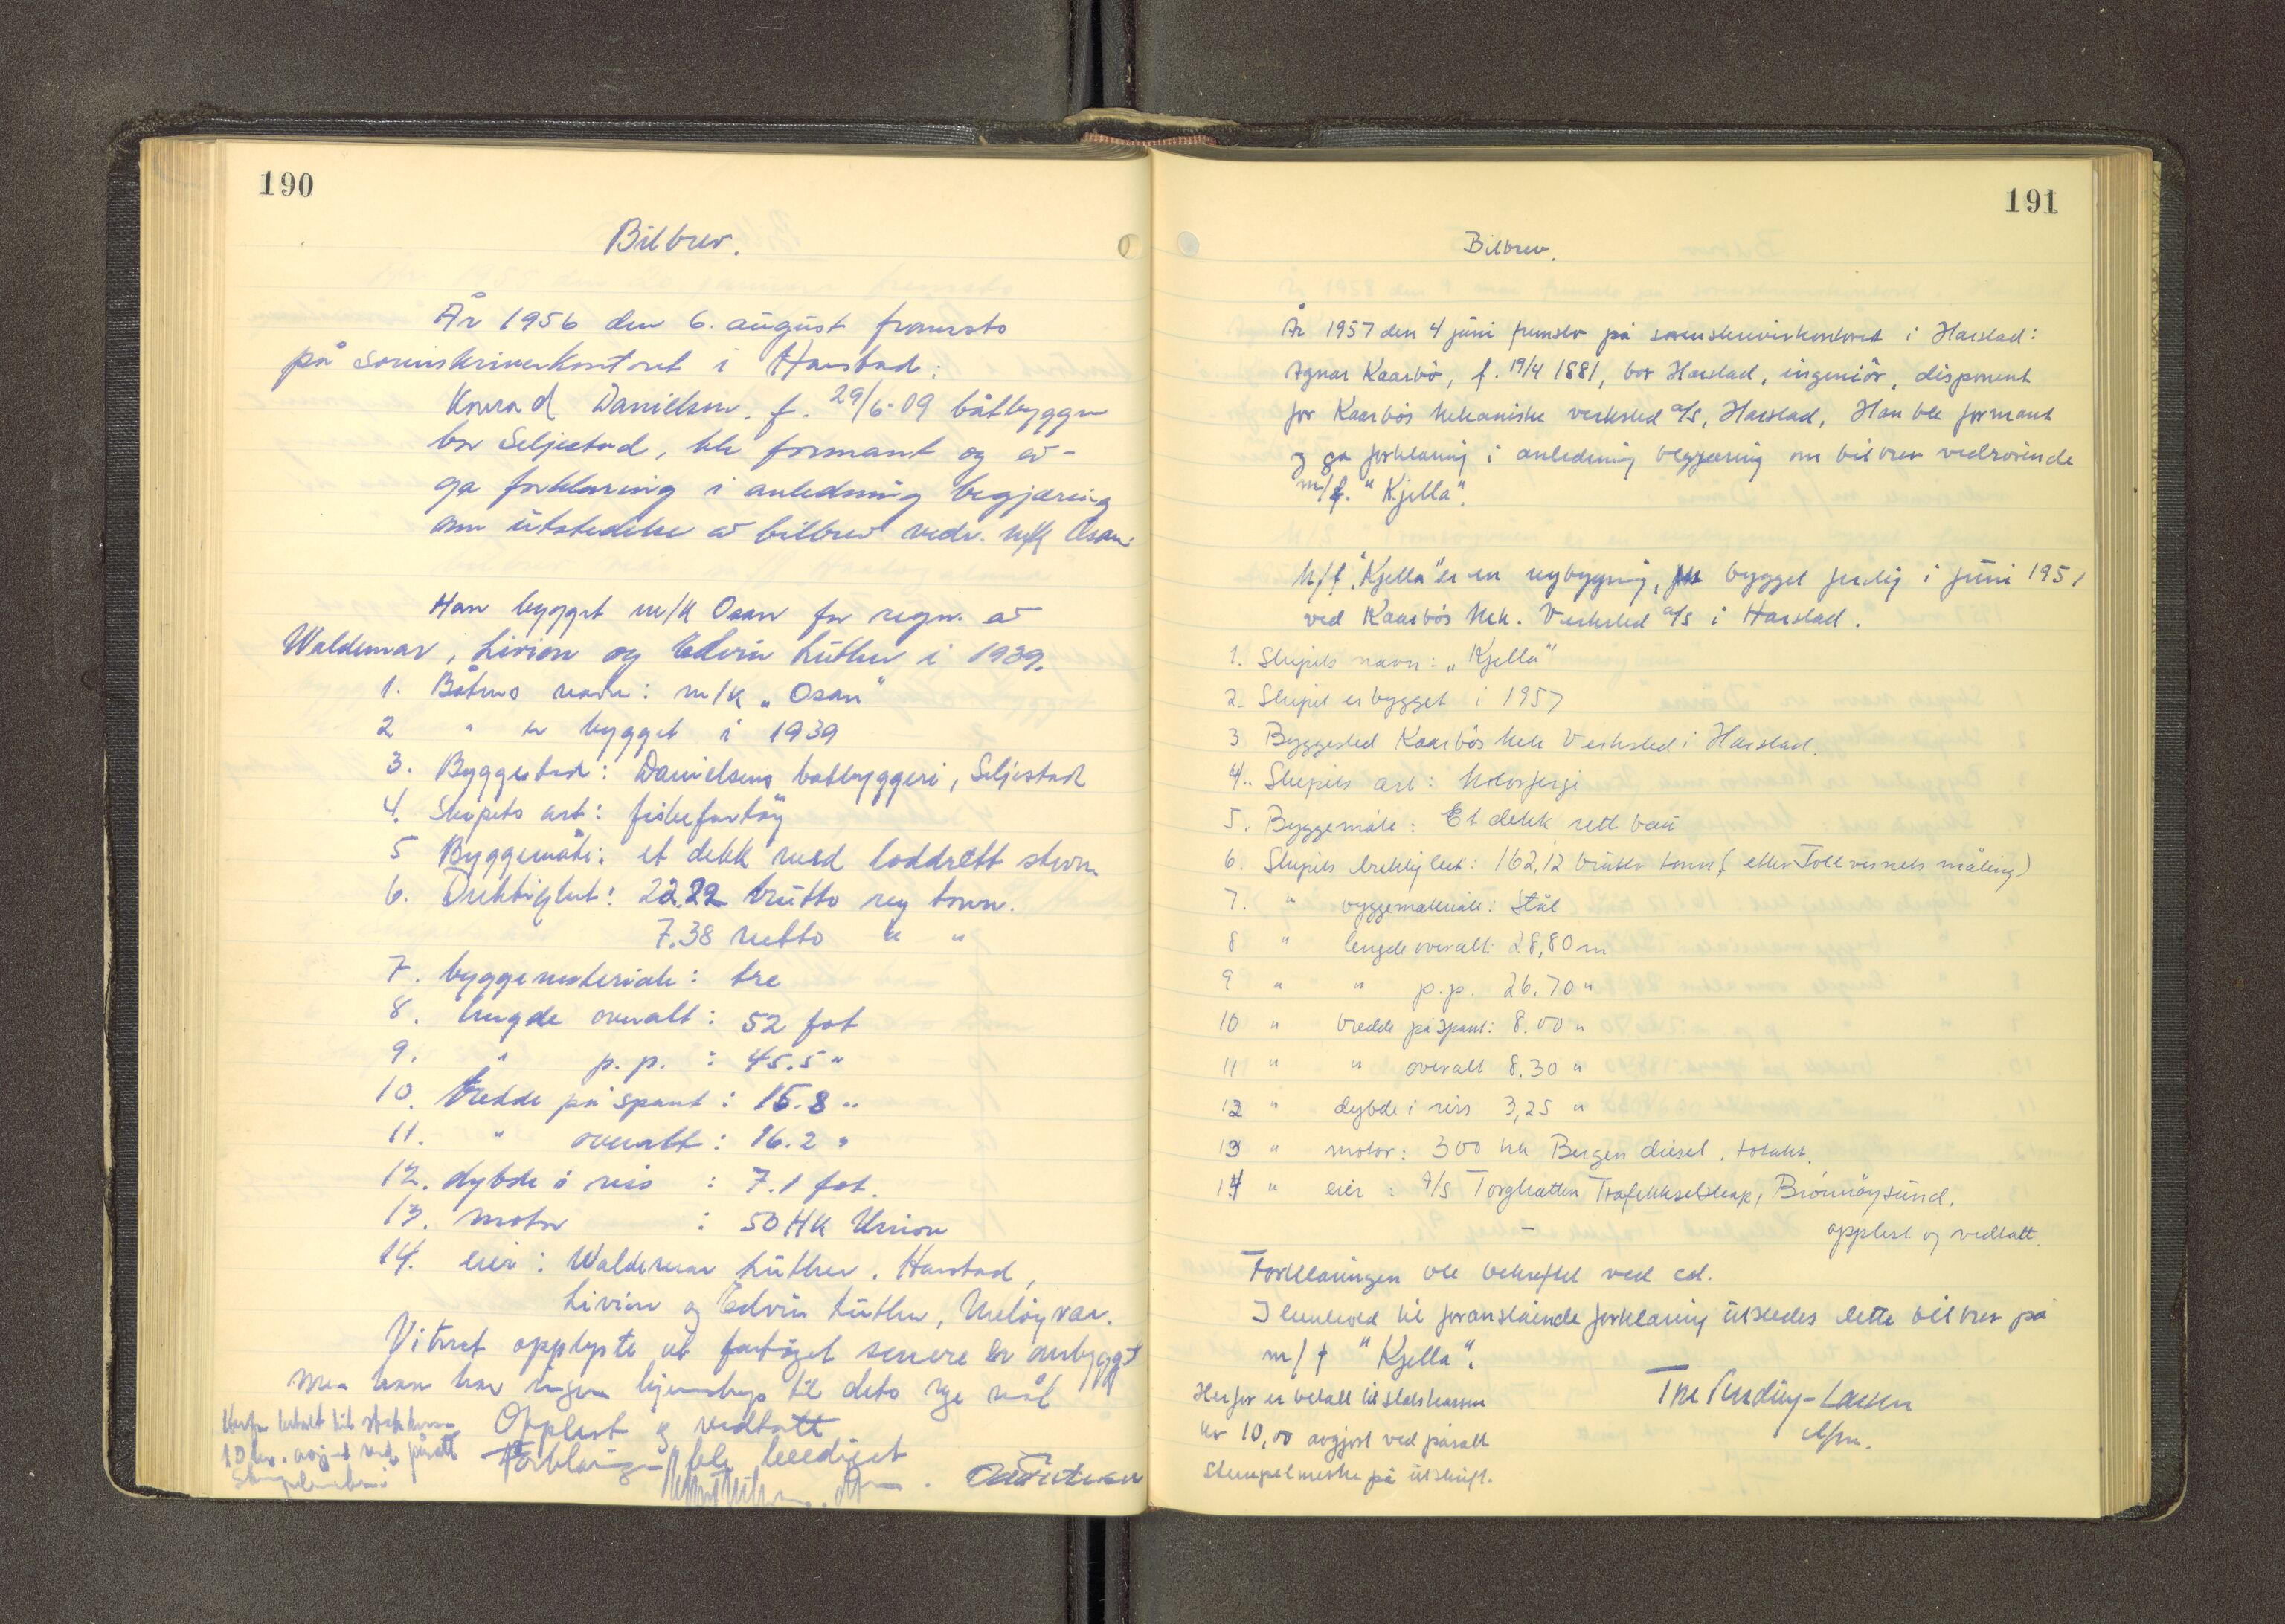 190
Bilbrev.
År 1956 den 6. august fremsto
på sorenskriverkontoret i Harstad:
Konrad Danielsen. f. 29/6-09 båtbygger
bor Seljestad, ble formant og av-
ga forklaring i anledning begjæring
om utstedelse av bilbrev vedr. m/k Osan
Han bygget m/k Osan for regn. av
Waldemar, Livion og Edvin Luther i 1939.
1. Båtens navn: m/k „Osan"
2 " er bygget i 1939
3. Byggested: Danielsens båtbyggeri, Seljestad
4. Skipets art: fiskefartöy
5 Byggemåte: et dekk med loddrett stevn
6. Drektighet: 22.22 brutto reg tonn.
7.38 netto " "
7. byggemateriale: tre
8. lengde overalt: 52 fot
9. " p.p. : 45.5 "
10. bredde på spant: 15.8 "
11. " overalt: 16.2 "
12. dybde i riss : 7.1 fot.
13. motor : 50 HK Union
14. eier: Waldemar Luther. Harstad,
Livion og Edvin Luther, Meløyvær.
Vitnet opplyste at fartöyet senere er ombygget
men han har ingen kjennskap til dets nye mål
Opplest og vedtatt
Forklaringen ble beediget
Herfor betalt til statskassen
10 kr. avgjort ved påsatt
191
Bilbrev.
År 1957 den 4 juni fremsto på sorenskriverkontoret i Harstad:
Agnar Kaarbö, f. 19/4 1881, bor Harstad, ingeniör, disponent
for Kaarbös Mekaniske verksted a/s, Harstad, Han ble formant
og ga forklaring i anledning begjæring om bilbrev vedrörende
m/f. "Kjella".
M/f. "Kjella" er en nybygning, bygget ferdig i juni 195
ved Kaarbös Mek. Verksted a/s i Harstad.
1. Skipets navn: „Kjella"
2. Skipet er bygget i 1957
3 Byggested Kaarbös Mek Verksted i Harstad.
4. Skipets art: Motorferje
5. Byggemåte: Et dekk rett baug
6. Skipets drektighet: 162,12 brutto tonn (etter Tollvesnets måling)
7. " byggemateriale: Stål
8 " lengde overalt: 28,80 m
9 " " p.p. 26.70 "
10 " bredde på spant: 8.00 "
11 " " overalt 8.30 "
12 " dybde i riss 3,25 "
13 " motor: 300 hk Bergen diesel, totakt.
14 " eier : A/S Torghatten Trafikkselskap, Brönnöysund.
opplest og vedtatt.
Forklaringen ble bekreftet ved ed.
I henhold til foranstående forklaring utstedes dette bilbrev på
m/f "Kjella".
Herfor er betalt til Statskassen
kr 10,00 avgjort ved påsatt
Stempelmerke på utskrift.